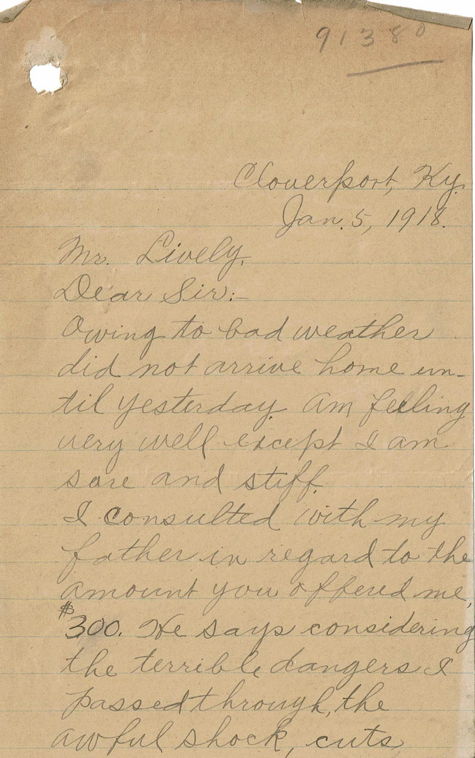 91380
Cloverport, Ky.
Jan. 5, 1918.
Mr. Lively,
Dear Sir:-
Owing to bad weather
did not arrive home un-
til yesterday. Am feeling
very well except I am
sore and stiff.
I consulted with my
father in regard to the
amount you offered me,
$300. He says considering
the terrible dangers I
passed through, the
awful shock, cuts,